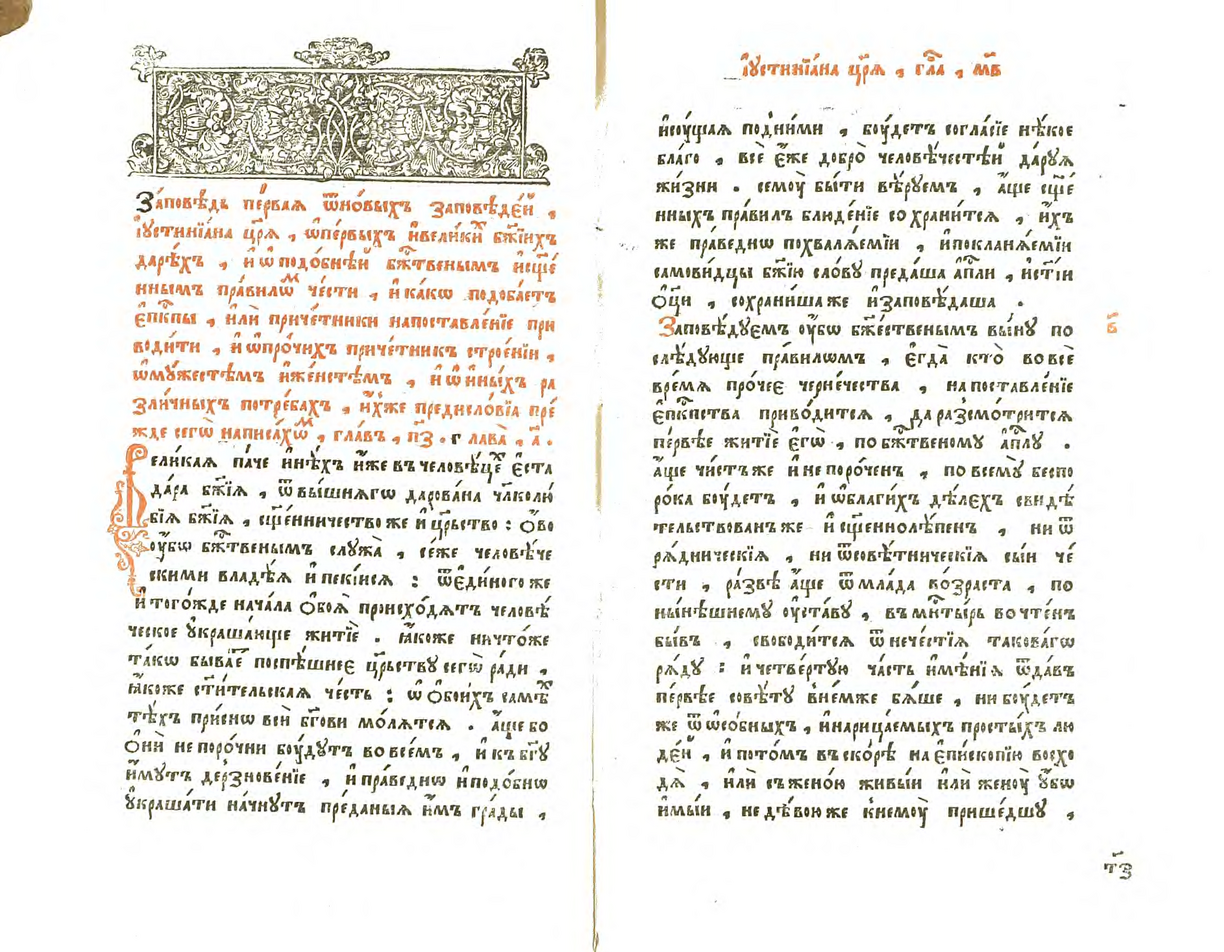 За́повѣдь пе́рваѧ ѿно́выхъ за́повѣдей ,
і҆ꙋстинїа́на цр҃ѧ̀ , ѡ҆пе́рвыхъ и҆вели́кихъ бж҃їихъ
даре́хъ , и҆ ѡ҆ подо́бнѣй бж҃твенымъ и҆сще҃
ннымъ пра́вилѡмъ че́сти , и҆ ка́кѡ подоба́етъ
є҆пкⷭ҇пы , и҆лѝ приче́тники напоставле́нїе при
води́ти , и҆ ѡ҆про́чихъ приче́тникъ строе́нїи ,
ѡ҆мꙋ́жестѣмъ и҆же́нстѣмъ , и҆ ѡ҆ и҆ны́хъ ра
зли́чныхъ потре́бахъ , и҆́хже предисло́вїа пре́
жде сегѡ̀ написа́хѡмъ , гла́въ , п҃з . г лава̀ , а҃ .
Вели́каѧ па́че и҆нѣ́хъ и҆́же въ человѣ́цѣхъ є҆ста̀
да́ра бж҃їѧ , ѿ вы́шнѧгѡ дарова́на чл҃колю́
бїѧ бж҃їѧ , сще҃нничество же и҆ црⷭ҇тво : ѻ҆́во
ᲂу҆́бѡ бж҃твенымъ слꙋжа̀ , се́же человѣ́че
скими владѣ́ѧ и҆ пекі́йсѧ : ѿ є҆ди́ного же
и҆ тогѡ́жде нача́ла ѻ҆боѧ̀ происхо́дѧтъ человѣ́
ческое ᲂу҆краша́юще житїѐ . ꙗ҆́коже ничто́же
та́кѡ быва́етъ поспѣ́шнеє црⷭ҇твꙋ сегѡ̀ ра́ди ,
ꙗ҆́коже ст҃и́тельскаѧ че́сть : ѡ҆ ѻ҆бои́хъ самѣ́хъ
тѣ́хъ при́снѡ всѝ бг҃ови мо́лѧтсѧ . а҆́ще бо
ѻ҆нѝ не поро́чни бꙋ́дꙋтъ во все́мъ , и҆ къ бг҃ꙋ
и҆́мꙋтъ дерзнове́нїе , и҆ пра́веднѡ и҆ подо́бнѡ
ᲂу҆краша́ти начнꙋ́тъ пре́даныѧ и҆̀мъ гра́ды ,
і҆ꙋстинїа́на цр҃ѧ̀ , гла҃ , м҃в
и҆сꙋ́щаѧ подни́ми , бꙋ́детъ согла́сїе нѣ́кое
бла́го , всѐ є҆́же добро̀ человѣ́честѣй да́рꙋѧ
жи́зни . семꙋ̀ бы́ти вѣ́рꙋемъ , а҆́ще сще҃
нныхъ пра́вилъ блюде́нїе сохрани́тсѧ , и҆́хъ
же пра́веднѡ похвалѧ́емїи , и҆покланѧ́емїи
самови́дцы бж҃їю сло́вꙋ преда́ша а҆пⷭ҇ли , и҆ст҃і́и
ѻ҆ц҃ы , сохрани́ша же и҆запо́вѣдаша .
Запо́вѣдꙋемъ ᲂу҆́бѡ бж҃е́ственымъ вы́нꙋ по
слѣ́дꙋюще пра́вилѡмъ , є҆гда̀ кто̀ во всѐ
вре́мѧ про́чеє черне́чества , на поставле́нїе
є҆пкⷭ҇пства приво́дитсѧ , да разсмо́тритсѧ
пе́рвѣе житїѐ є҆гѡ̀ , по бж҃твеномꙋ а҆пⷭ҇лꙋ .
а҆́ще чи́стъ же и҆ не поро́ченъ , по всемꙋ̀ беспо
ро́ка бꙋ́детъ , и҆ ѡ҆ благи́хъ дѣ́лехъ свидѣ́
тельствованъ же и҆ сще҃ннолѣ́пенъ , ни ѿ
рѧ́дническїѧ , ни ѿсовѣ́тническїѧ сы́и че́
сти , ра́звѣ а҆́ще ѿ мла́да во́зраста , по
ны́нѣшнемꙋ ᲂу҆ста́вꙋ , въ мнⷭ҇ты́рь во чте́нъ
бы́въ , свободи́тсѧ ѿ нече́стїѧ такова́гѡ
рѧ́дꙋ : и҆ четве́ртꙋю ча́сть и҆мѣ́нїѧ ѿда́въ
пе́рвѣе совѣ́тꙋ внемже бѧ́ше , ни бꙋ́детъ
же ѿ ѡ҆со́бныхъ , и҆нарица́емыхъ просты́хъ лю
де́й , и҆ пото́мъ въ ско́рѣ на є҆писко́пїю восхо
дѧ̀ , и҆лѝ съ жено́ю живы́и и҆лѝ женꙋ̀ ᲂу҆́бѡ
и҆мы́и , не дѣ́вою же кнемꙋ̀ прише́дшꙋ ,
в҃
т҃з